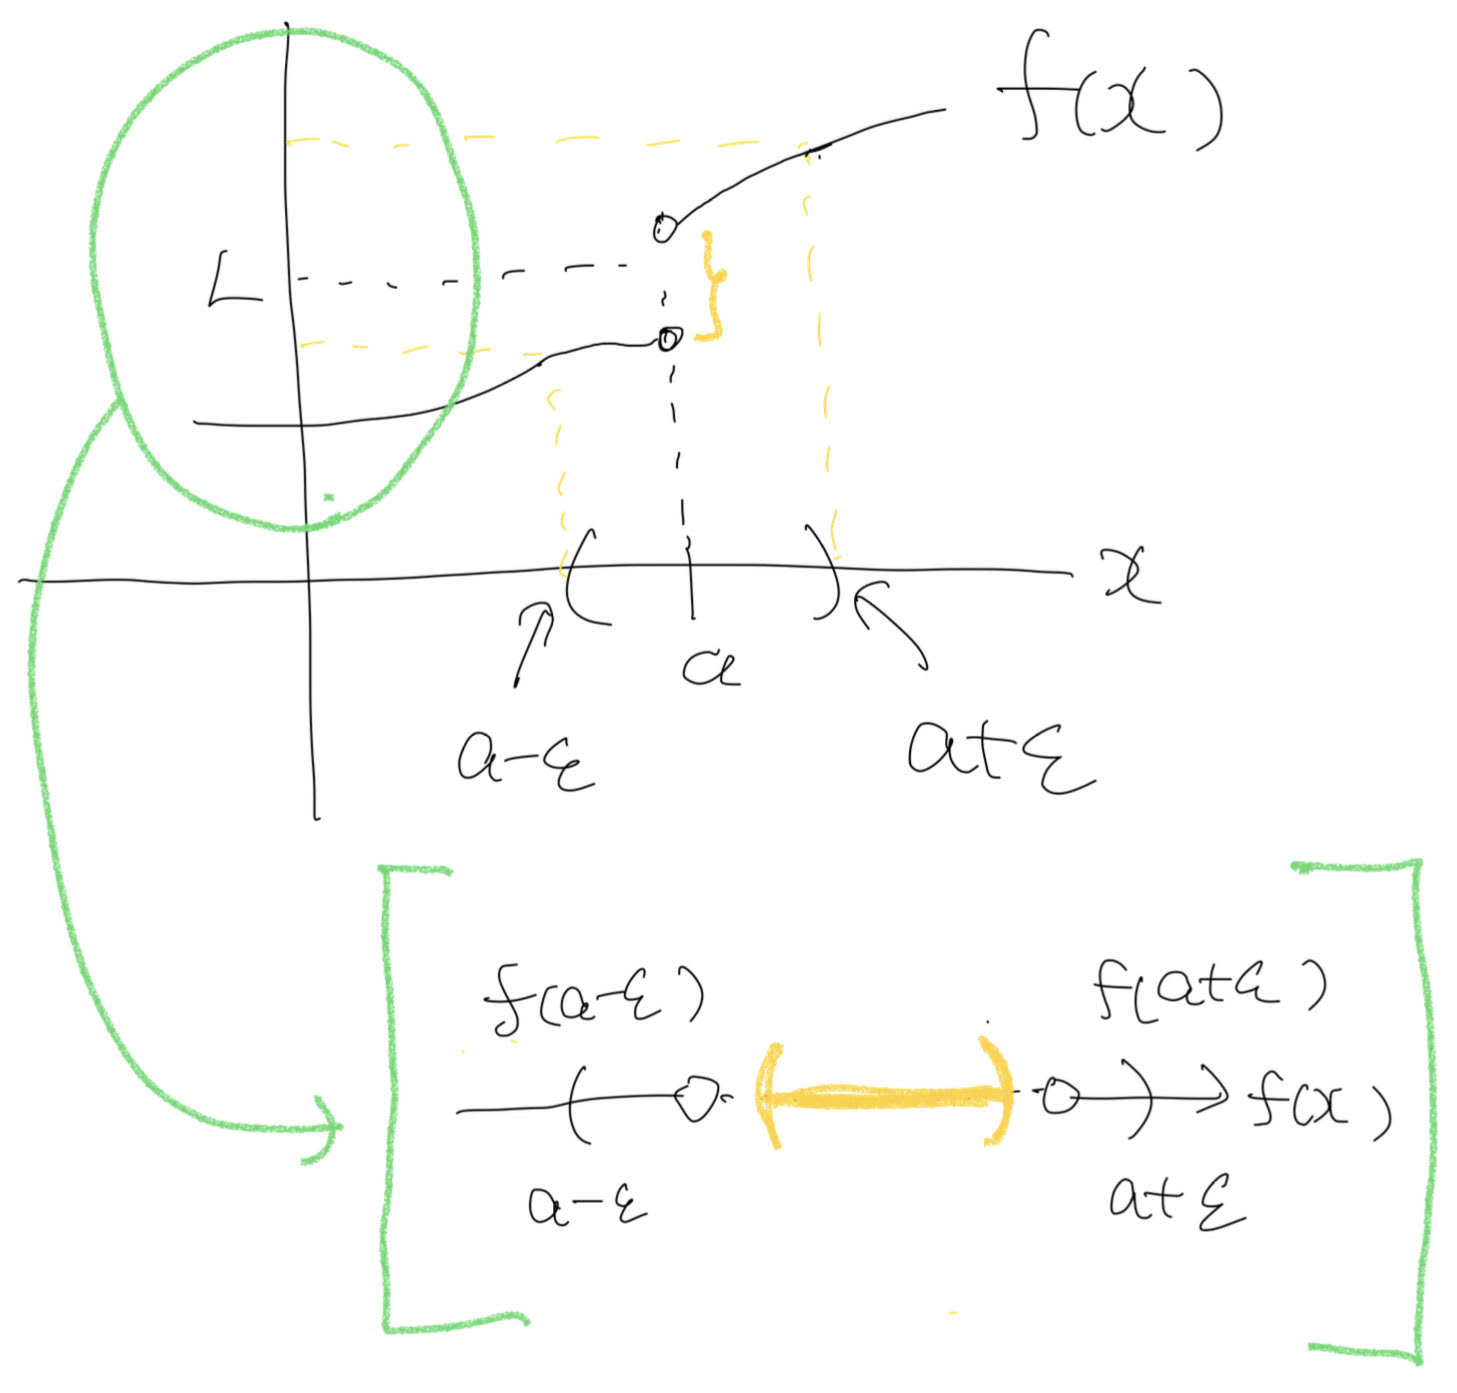 f(x)
L
x
a
a-ε
a+ε
f(a-ε) f(a+ε)
f(x)
a-ε a+ε